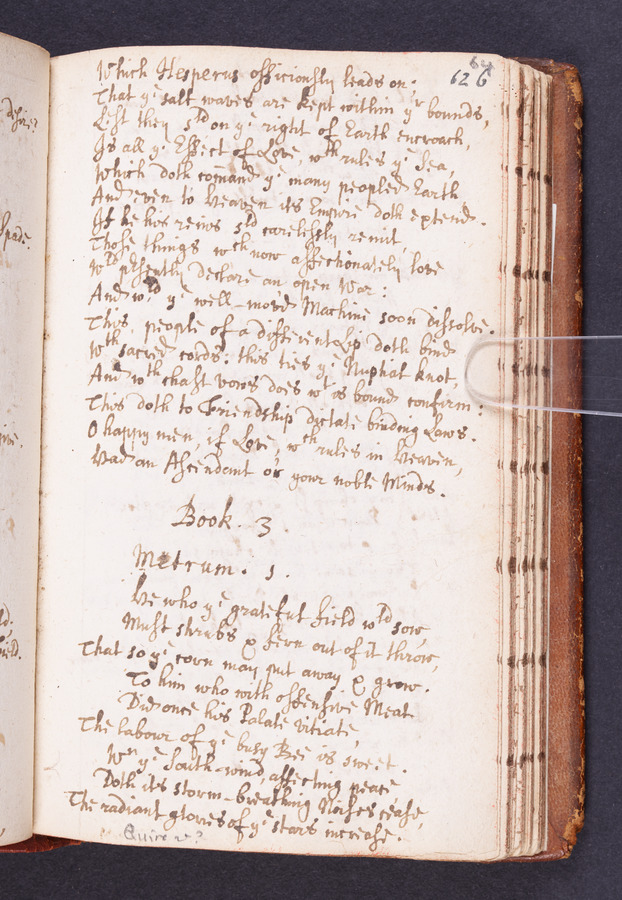 64
62 6
Which Hesperus officiously leads on:
That ye salt waves are kept within yr bounds,
Lest they sld on ye right of Earth encroach,
Is all ye Effect of Love, wch rules ye Sea,
Which doth comand ye many peopled Earth
And even to Heaven its Empire doth extend.
If he his reins sld carelessly remit,
Those things wch now affectionately love
Wld psently declare an open War:
And wld ye well-moved Machine soon dissolve.
This, people of a different Lip doth bind
Wth sacred cords: this ties ye Nuptial knot,
And wth chast vows does wt is bound confirm:
This doth to Friendship dictate binding Laws.
O happy men, if Love, wch rules in Heaven,
Had an Ascendant or your noble Minds.
Book. 3.
Metrum. 1.
He who ye grateful field wld sow,
Must shrubs & fern out of it throw,
That so ye corn may put away & grow.
To him who with offensive Meat
Did once his Palate vitiate,
The labour of ye busy Bee is sweet.
Wn ye South-wind, affecting peace
Doth its storm-breathing Noises cease,
The radiant glories of ye stars increase.
Quire